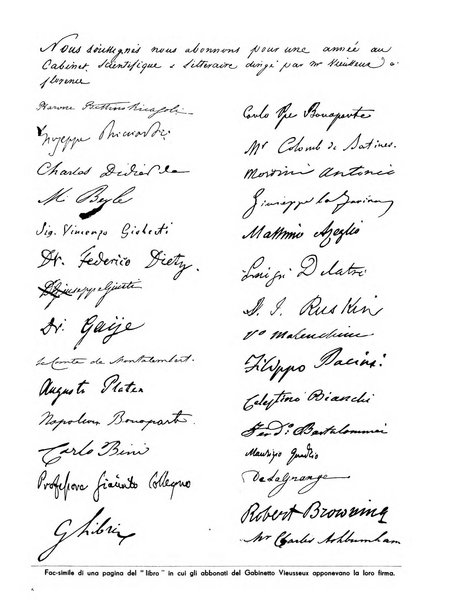 Nous soussignés nous abonnons pour une année au
Cabinet Scientifique & litteraire dirigé par mr Vieusseux a
florence
Barone Bettino Ricasoli
Giuseppe Ricciardi
Charles Didier
M. Beyle
Sig. Vincenzo Gioberti
Dr. Federico Dietz.
Giuseppe Giusti
Dr. Gaije
Le Comte de Montalembert.
Augusto Platen
Napoleon Bonaparte
Carlo Bini
Professore Giacinto Collegno
G Libri
Carlo Bonaparte
Mr Colomb de Batines.
Mordini Antonio
Giuseppe La Farina
Massimo Azeglio
Luigi Delatri
D. J. Ruskin
Malenchini
Filippo Pacini
Celestino Bianchi
Ferd.º Bartolommei
Maurizio
De LaGrange
Robert Browning
Mr Charles Ashburnham
Fac-simile di una pagina del "libro" in cui gli abbonati del Gabinetto Vieusseux apponevano la loro firma.